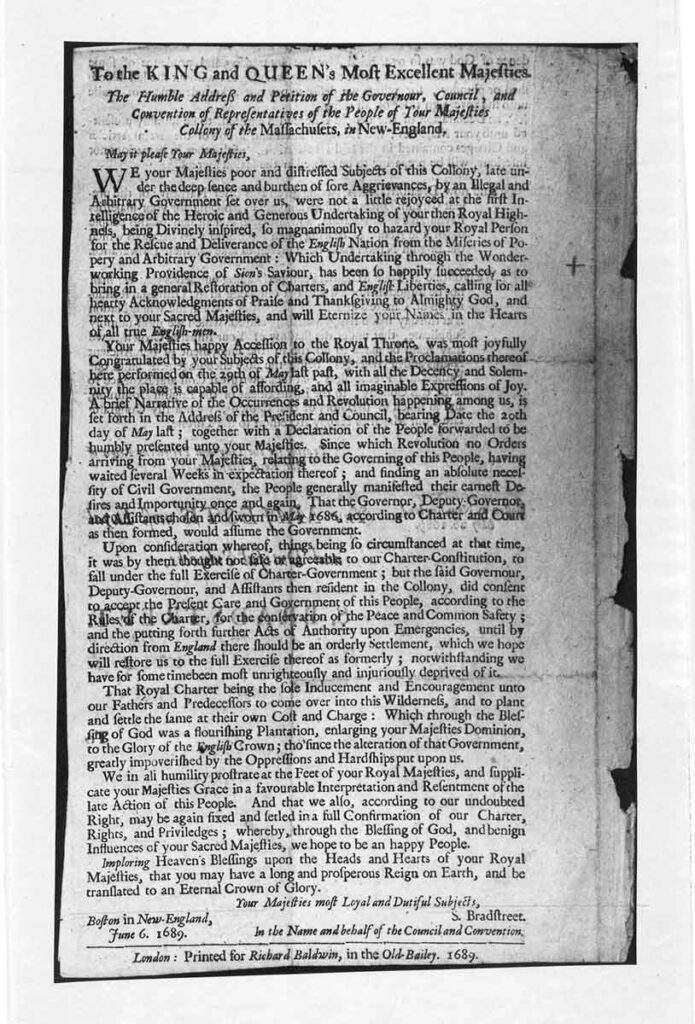 To the KING and QUEEN's Moſt Excellent Majeſties.
The Humble Addreſs and Petition of the Governour, Council, and
Convention of Repreſentatives of the People of Your Majeſties
Collony of the Maſſachuſets, in New-England,
May it pleaſe Your Majeſties,
WE your Majeſties poor and diſtreſſed Subjects of this Collony, late un-
der the deep ſence and burthen of ſore Aggrievances, by an Illegal and
Arbitrary Government ſet over us, were not a little rejoyced at the firſt In-
telligence of the Heroic and Generous Undertaking of your then Royal High-
neſs, being Divinely inſpired, ſo magnanimouſly to hazard your Royal Perſon
for the Reſcue and Deliverance of the Engliſh Nation from the Miſeries of Po-
pery and Arbitrary Government : Which Undertaking through the Wonder-
working Providence of Sion's Saviour, has been ſo happily ſucceeded, as to
bring in a general Reſtoration of Charters, and Engliſh Liberties, calling for all
hearty Acknowledgments of Praiſe and Thankſgiving to Almighty God, and
next to your Sacred Majeſties, and will Eternize your Names in the Hearts
of all true Engliſh-men.
Your Majeſties happy Acceſſion to the Royal Throne, was moſt joyfully
Congratulated by your Subjects of this Collony, and the Proclamations thereof
here performed on the 29th of May laſt paſt, with all the Decency and Solem-
nity the place is capable of affording, and all imaginable Expreſſions of Joy.
A brief Narrative of the Occurrences and Revolution happening among us, is
ſet forth in the Addreſs of the Preſident and Council, bearing Date the 20th
day of May laſt ; together with a Declaration of the People forwarded to be
humbly preſented unto your Majeſties. Since which Revolution no Orders
arriving from your Majeſties, relating to the Governing of this People, having
waited ſeveral Weeks in expectation thereof ; and finding an abſolute neceſ-
ſity of Civil Government, the People generally manifeſted their earneſt De-
ſires and Importunity once and again, That the Governor, Deputy-Governor,
and Aſſiſtants choſen and ſworn in May 1686, according to Charter and Court
as then formed, would aſſume the Government.
Upon conſideration whereof, things being ſo circumſtanced at that time,
it was by them thought not ſafe or agreeable to our Charter-Conſtitution, to
fall under the full Exerciſe of Charter-Government ; but the ſaid Governour,
Deputy-Governour, and Aſſiſtants then reſident in the Collony, did conſent
to accept the Preſent Care and Government of this People, according to the
Rules of the Charter, for the conſervation of the Peace and Common Safety ;
and the putting forth further Acts of Authority upon Emergencies, until by
direction from England there ſhould be an orderly Settlement, which we hope
will reſtore us to the full Exerciſe thereof as formerly ; notwithſtanding we
have for ſometimebeen moſt unrighteouſly and injuriouſly deprived of it.
That Royal Charter being the ſole Inducement and Encouragement unto
our Fathers and Predeceſſors to come over into this Wilderneſs, and to plant
and ſettle the ſame at their own Coſt and Charge : Which through the Bleſ-
ſing of God was a flouriſhing Plantation, enlarging your Majeſties Dominion,
to the Glory of the Engliſh Crown ; tho' ſince the alteration of that Government,
greatly impoveriſhed by the Oppreſſions and Hardſhips put upon us.
We in all humility proſtrate at the Feet of your Royal Majeſties, and ſuppli-
cate your Majeſties Grace in a favourable Interpretation and Reſentment of the
late Action of this People. And that we alſo, according to our undoubted
Right, may be again fixed and ſetled in a full Confirmation of our Charter,
Rights, and Priviledges ; whereby, through the Bleſſing of God, and benign
Influences of your Sacred Majeſties, we hope to be an happy People.
Imploring Heaven's Bleſſings upon the Heads and Hearts of your Royal
Majeſties, that you may have a long and proſperous Reign on Earth, and be
tranſlated to an Eternal Crown of Glory.
Your Majeſties moſt Loyal and Dutiful Subjects,
Boſton in New-England, S. Bradſtreet.
June 6. 1689. In the Name and behalf of the Council and Convention.
London : Printed for Richard Baldwin, in the Old-Bailey. 1689.